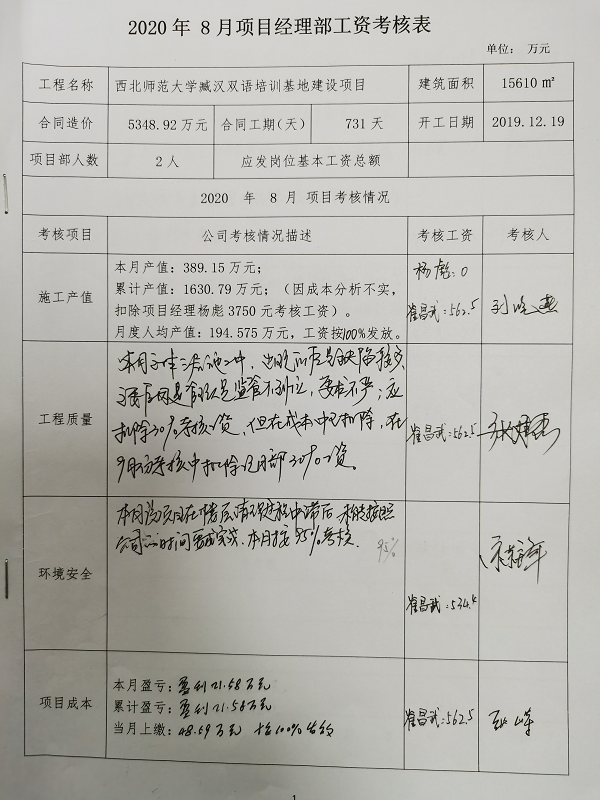 2020 年 8 月项目经理部工资考核表
单位： 万元
工程名称 西北师范大学臧汉双语培训基地建设项目 建筑面积 15610 ㎡
合同造价 5348.92 万元 合同工期(天) 731 天 开工日期 2019.12.19
项目部人数 2 人 应发岗位基本工资总额
2020 年 8 月 项目考核情况
考核项目 公司考核情况描述 考核工资 考核人
施工产值
本月产值: 389.15 万元；
累计产值: 1630.79 万元；（因成本分析不实，
扣除项目经理杨彪 3750 元考核工资）。
月度人均产值: 194.575 万元，工资按100%发放。
杨彪: 0
崔昌武: 562.5
工程质量
本月主体施工中，出现质量缺陷较多
主要原因是管理人员监管不到位，要求不严；应
扣除30%考核工资，但在成本中已扣除，在
9月份考核中扣除项目部30%工资。
崔昌武: 562.5
环境安全
本月
公司 时间要求完成，本月按95%考核
95%
崔昌武: 534.4
项目成本
本月盈亏: 盈利21.58万元
累计盈亏: 盈利21.58万元
当月上缴: 48.59万元 按100%发放
崔昌武: 562.5
1